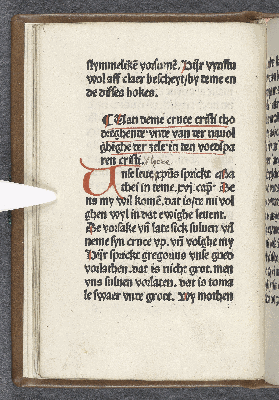 stymmelikē vorsumē. Hijr vynstu
wol aff claer bescheyt by teme en
de disses bokes.
¶ Uan deme cruce cristi tho
dreghente vnte van ter nauol
ghīghe ter zele in ten voetspa
ren cristi.
Unse leue xp̄us sprickt
thei in teme .xvj. cap. De
ns my wil komē. dat is te mi vol
ghen wyl in dat ewighe leuent.
De vorsake vn̄ late sick suluen vn̄
neme syn cruce vp. vn̄ volghe my
Hijr sprickt gregorius vnse guet
vorlathen. dat is nicht grot. men
vns suluen vorlaten. dat is to ma
le swaer vnte groot. Wy mothen